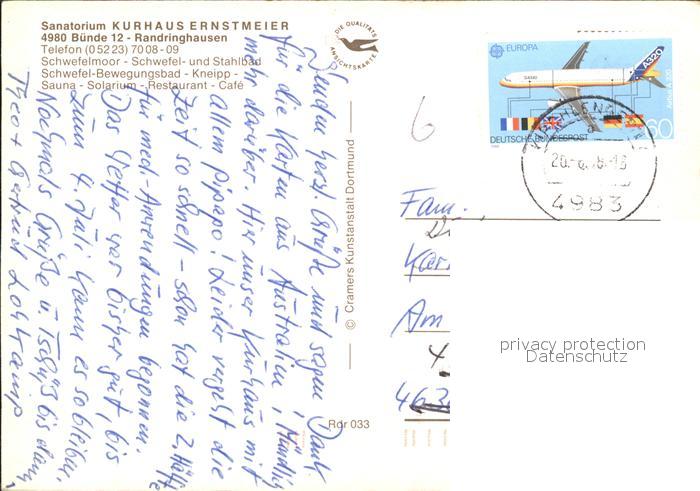 Sanatorium KURHAUS ERNSTMEIER
4980 Bünde 12 - Randringhausen
Telefon (05223) 7008-09
Schwefelmoor - Schwefel- und Stahlbad
Schwefel-Bewegungsbad - Kneipp -
Sauna - Solarium - Restaurant - Café
DIE QUALITÄTS
ANSICHTSKARTE
Senden herzl. Grüße und sagen Dank
für die Karten aus Australien, mündlich
mehr darüber. Hier unser Kurhaus mit
allem Pipapo! Leider vergeht die
Zeit so schnell - schon hat die 2. Hälfte
für med. Anwendungen begonnen.
Das Wetter war bisher gut, bis
zum 4. Juli kann es so bleiben.
Nochmals Grüße u. Tschüß bis dann,
Theo + Gertrud
© Cramers Kunstanstalt Dortmund
Rdr 033
6
EUROPA
A320
Airbus A320
DEUTSCHE BUNDESPOST
60
4983
Fam.
Am
4.
463
privacy protection
Datenschutz